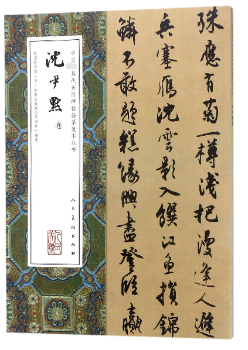 殊應有菊一樽淺把漫逢人避
兵塞雁沈雲影入饌江魚損錦
鱗不敢題糕緣興盡登臨贏
沈尹默
卷
人民美术出版社